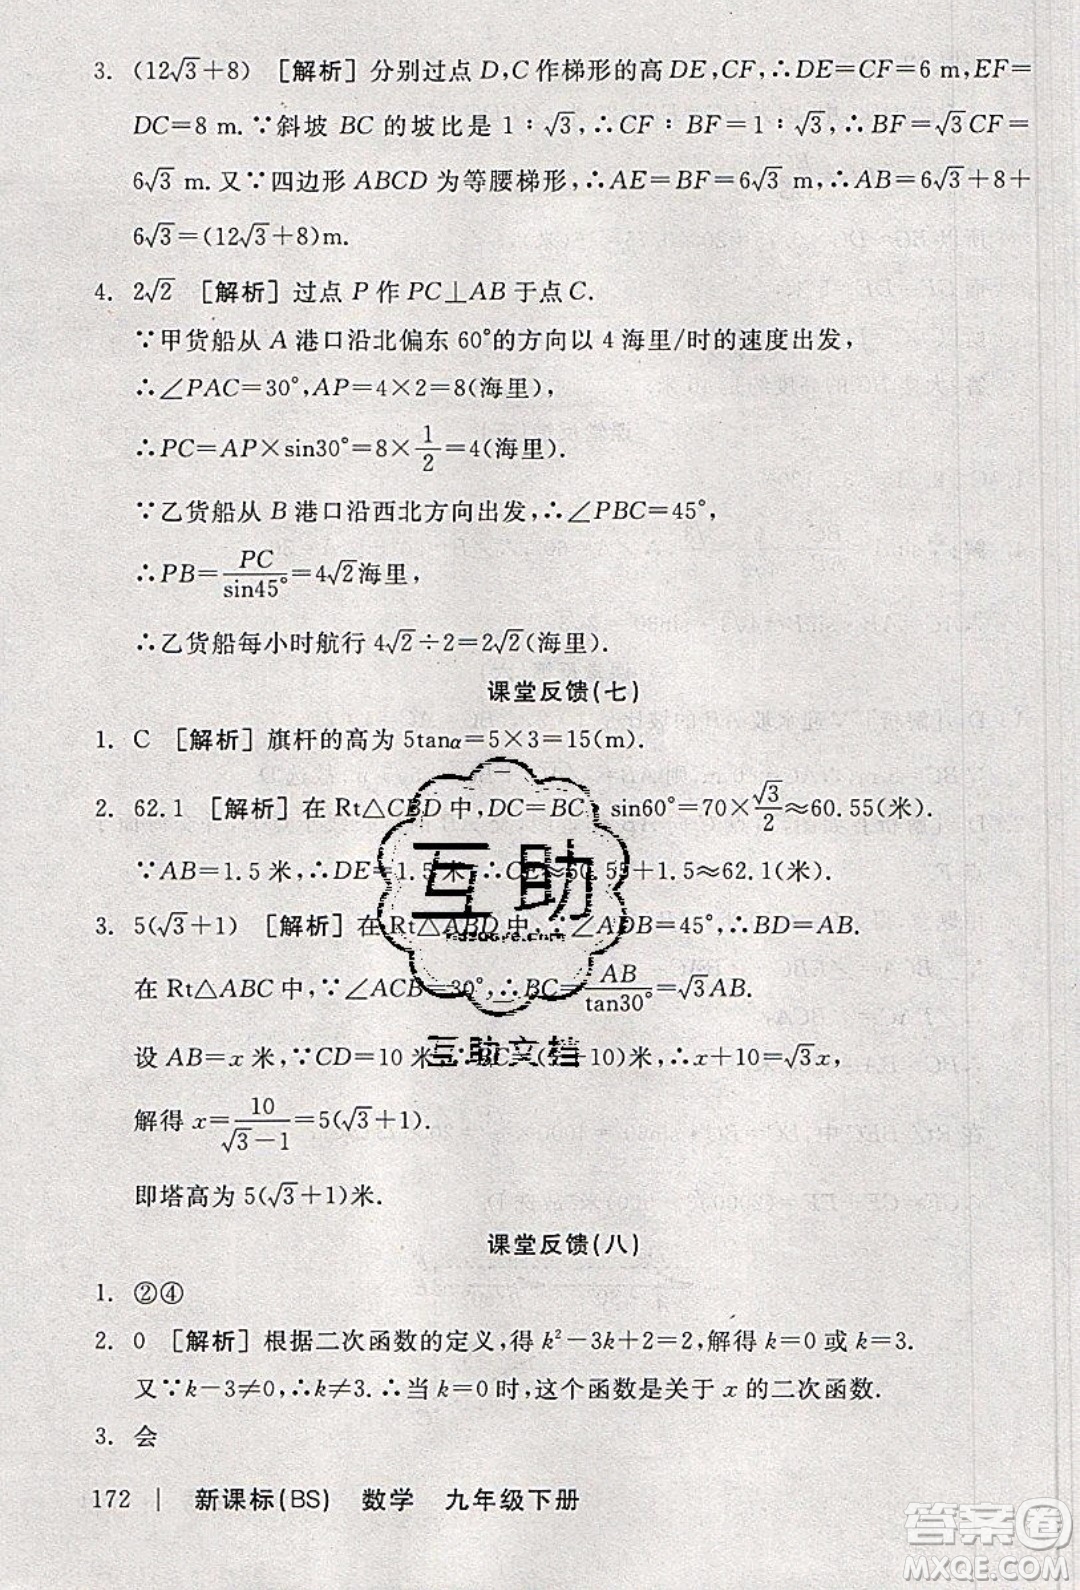 3. (12√3+8) [解析]分别过点D,C作梯形的高DE,CF,∴DE=CF=6 m,EF=
DC=8 m.∵斜坡 BC 的坡比是 1∶√3,∴CF∶BF=1∶√3,∴BF=√3CF=
6√3 m.又∵四边形 ABCD 为等腰梯形,∴AE=BF=6√3 m,∴AB=6√3+8+
6√3=(12√3+8)m.
4. 2√2 [解析]过点 P 作 PC⊥AB 于点 C.
∵甲货船从 A 港口沿北偏东 60°的方向以 4 海里/时的速度出发,
∴∠PAC=30°,AP=4×2=8(海里),
∴PC=AP×sin30°=8×1/2=4(海里).
∵乙货船从 B 港口沿西北方向出发,∴∠PBC=45°,
∴PB=PC/sin45°=4√2海里,
∴乙货船每小时航行 4√2÷2=2√2(海里).
课堂反馈(七)
1. C [解析]旗杆的高为 5tanα=5×3=15(m).
2. 62.1 [解析]在 Rt△CBD 中,DC=BC·sin60°=70×√3/2≈60.55(米).
∵AB=1.5 米,∴DE=1.5米,∴CE=60.55+1.5≈62.1(米).
3. 5(√3+1) [解析]在 Rt△ABD 中,∵∠ADB=45°,∴BD=AB.
在 Rt△ABC 中,∵∠ACB=30°,∴BC=AB/tan30°=√3AB.
设 AB=x 米,∵CD=10 米,∴BC=(x+10)米,∴x+10=√3x,
解得 x=10/(√3-1)=5(√3+1).
即塔高为 5(√3+1)米.
课堂反馈(八)
1. ②④
2. 0 [解析]根据二次函数的定义,得 k²-3k+2=2,解得 k=0 或 k=3.
又∵k-3≠0,∴k≠3.∴当 k=0 时,这个函数是关于 x 的二次函数.
3. 会
172 | 新课标(BS) 数学 九年级下册
互助
互助文档
答案圈
MXQE.COM